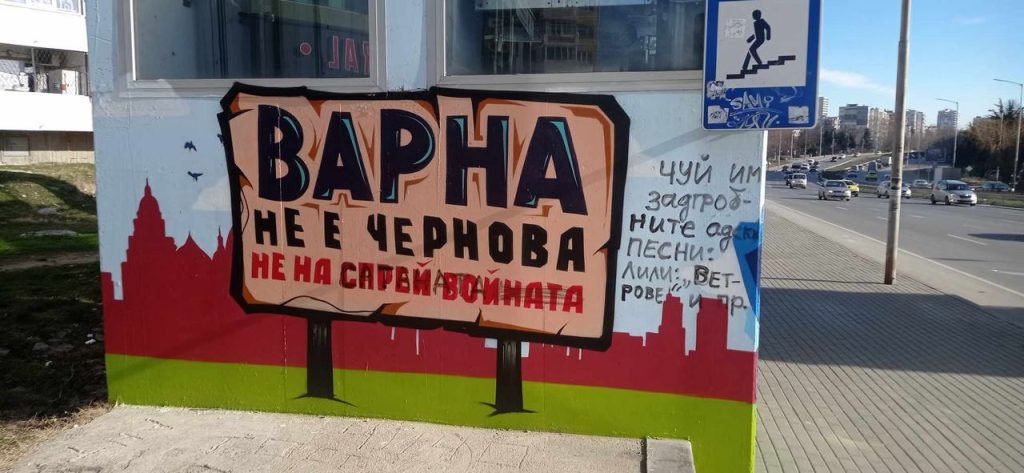 ВАРНА
НЕ Е ЧЕРНОВА
НЕ НА СПРЕЙ ВОЙНАТА
ЧУЙ ИМ
ЗАДГРОБ-
НИТЕ адски
ПЕСНИ:
ЛИЛИ: „ВЕТ-
РОВЕ", и пр.
SAMI